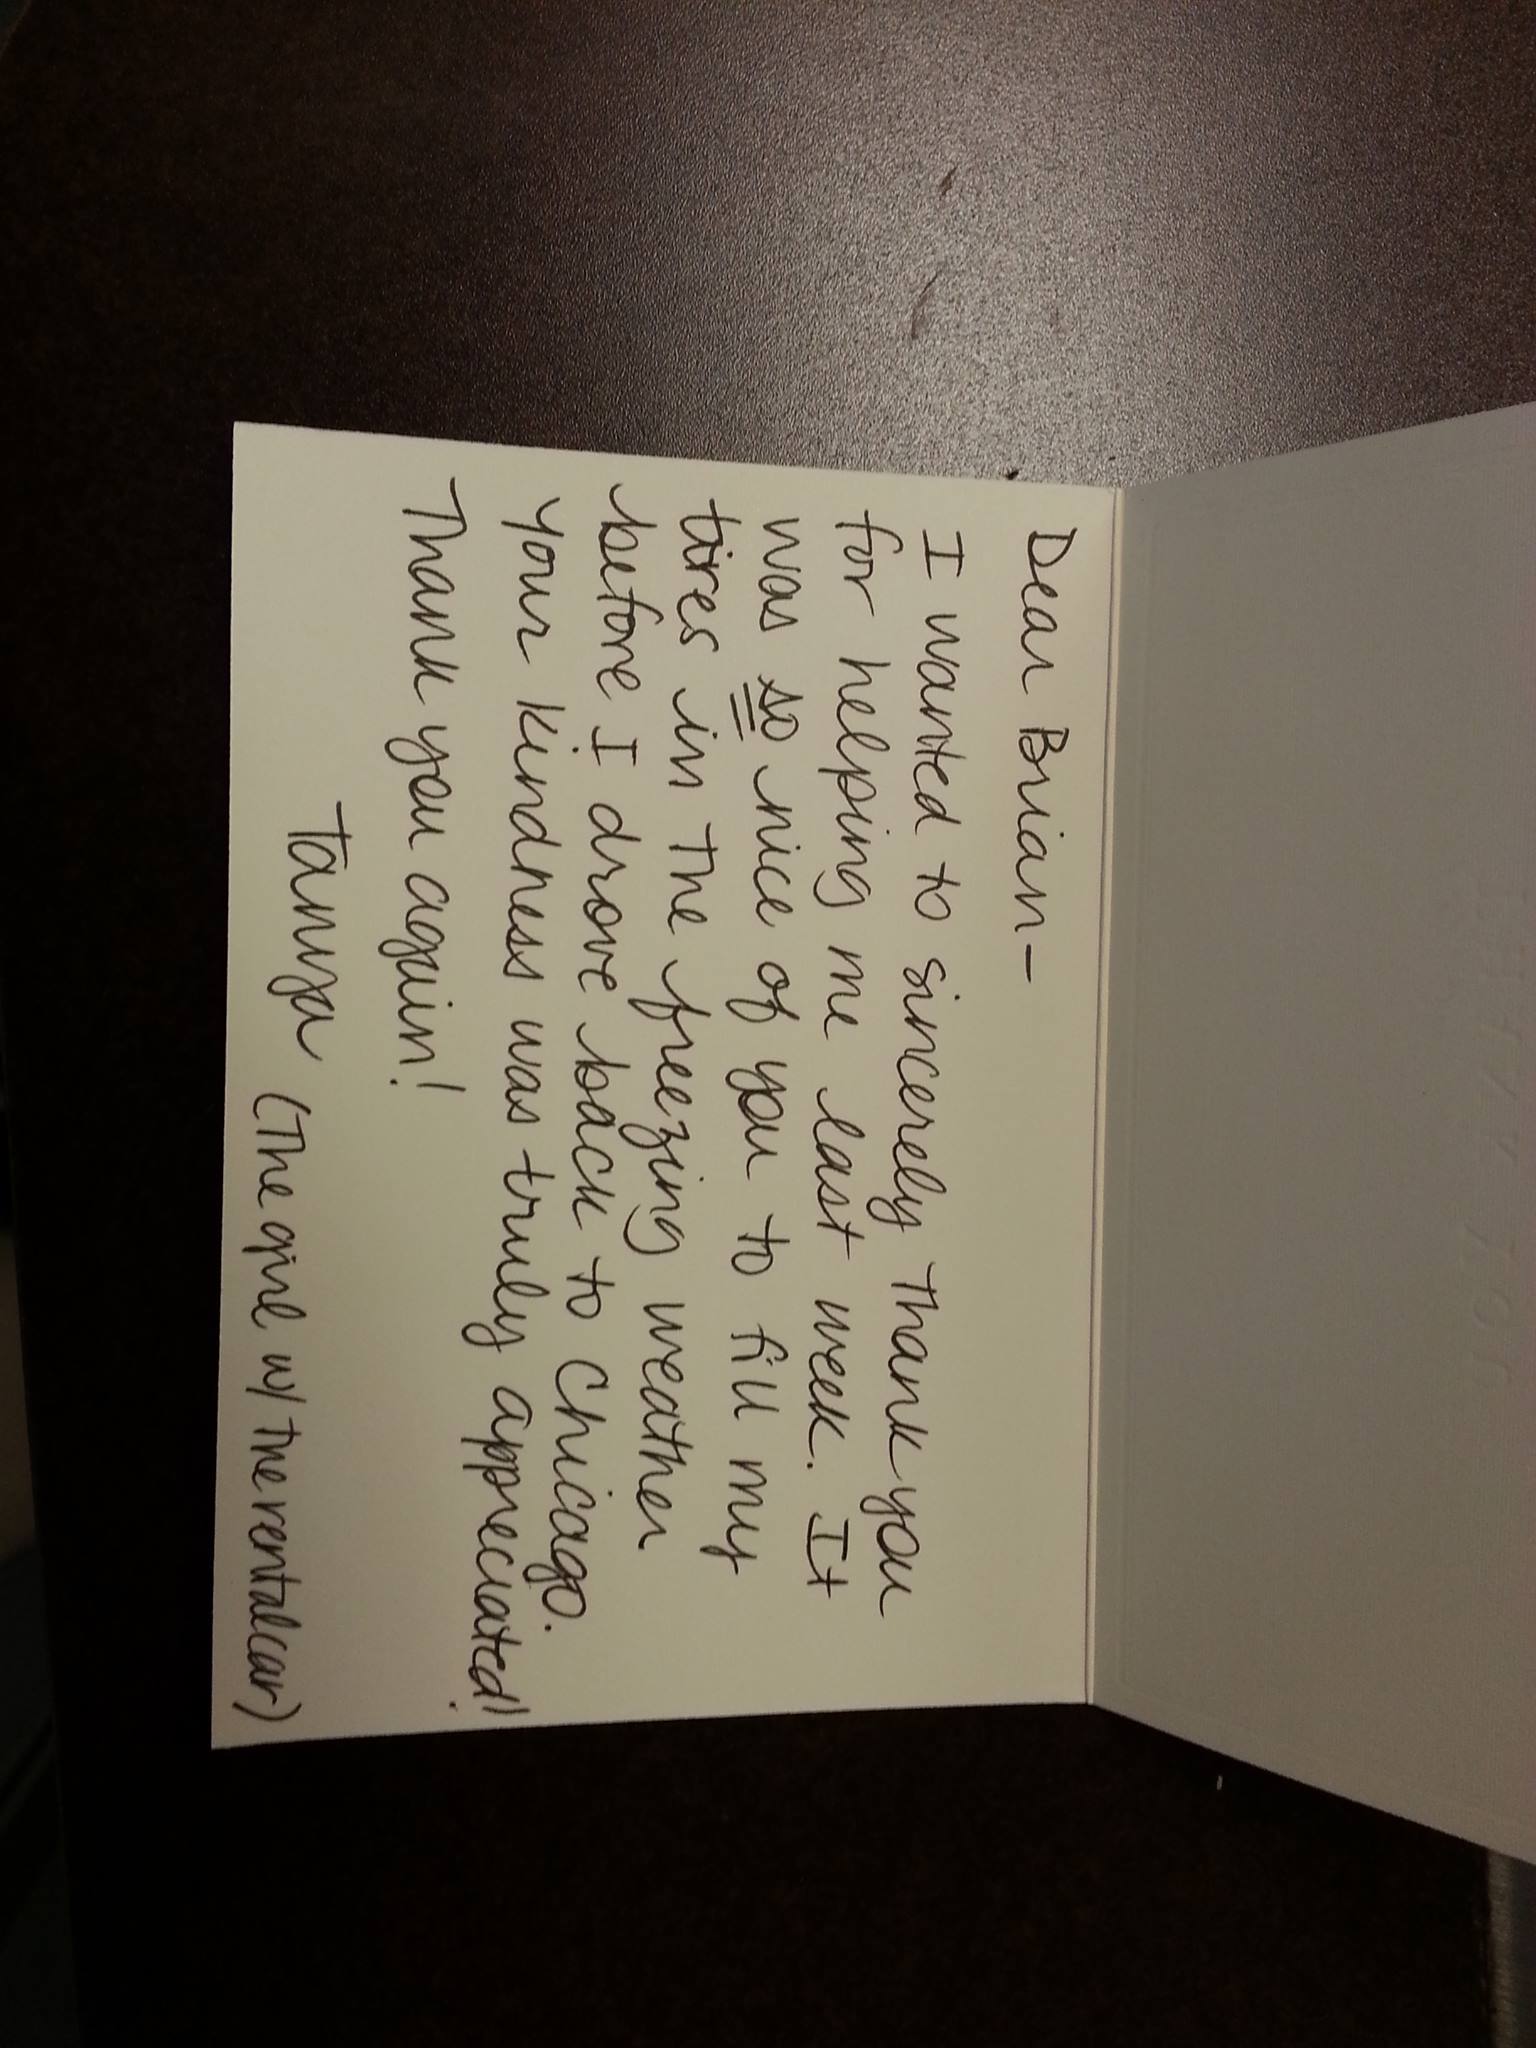 Dear Brian-
I wanted to sincerely thank you
for helping me last week. It
was so nice of you to fill my
tires in the freezing weather
before I drove back to Chicago.
Your kindness was truly appreciated!
Thank you again!
Tanya (The girl w/ the rental car)